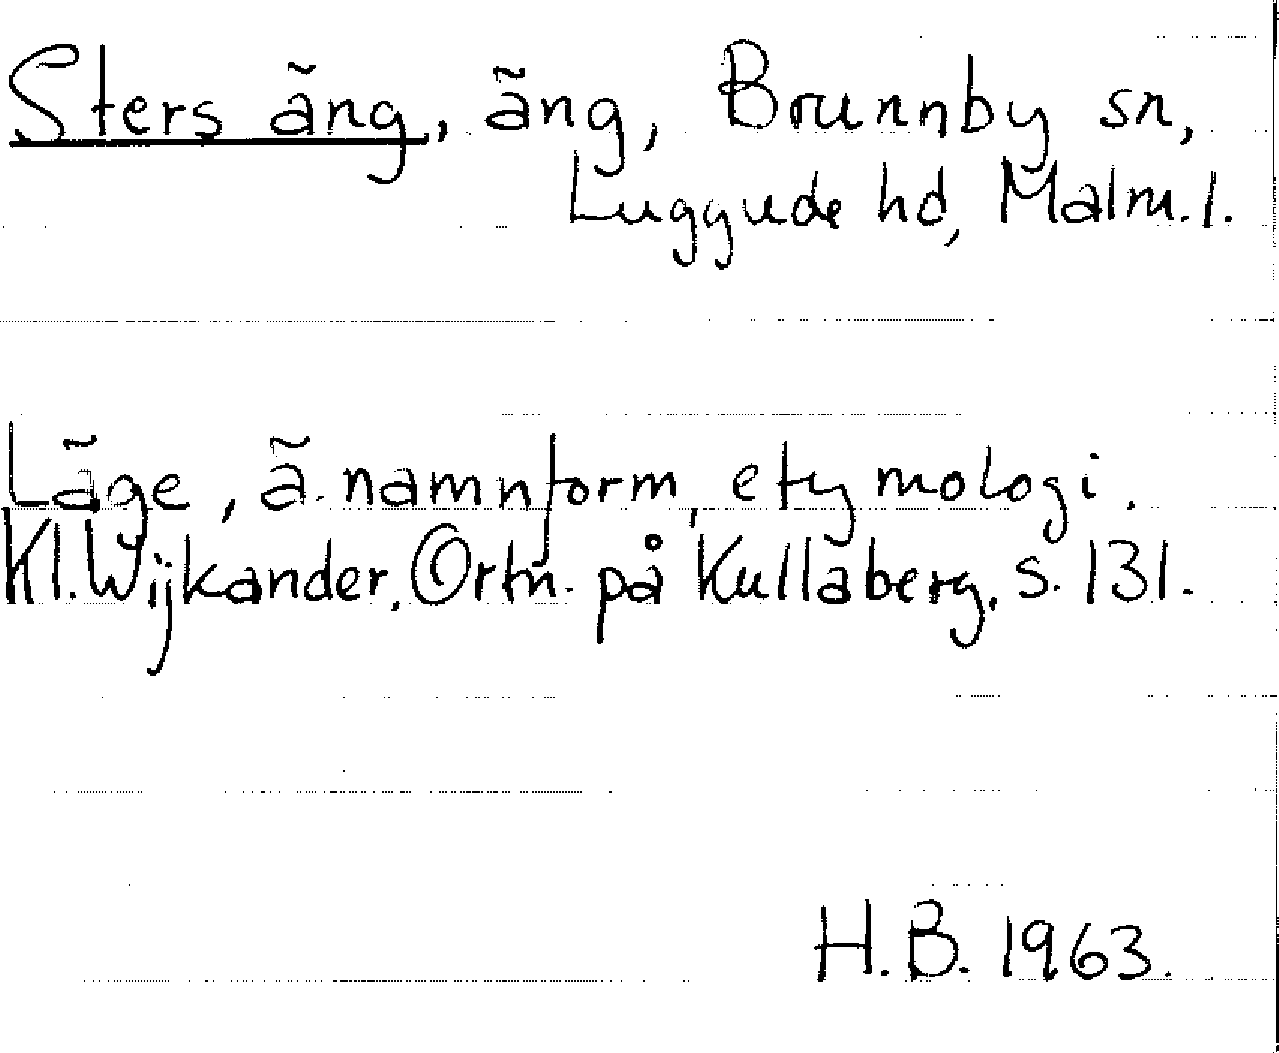 Sters äng, äng, Brunnby sn,
Luggude hd, Malm. l.
Läge, ä. namnform, etymologi.
Kl. Wijkander, Ortn. på Kullaberg, s. 131.
H.B. 1963.